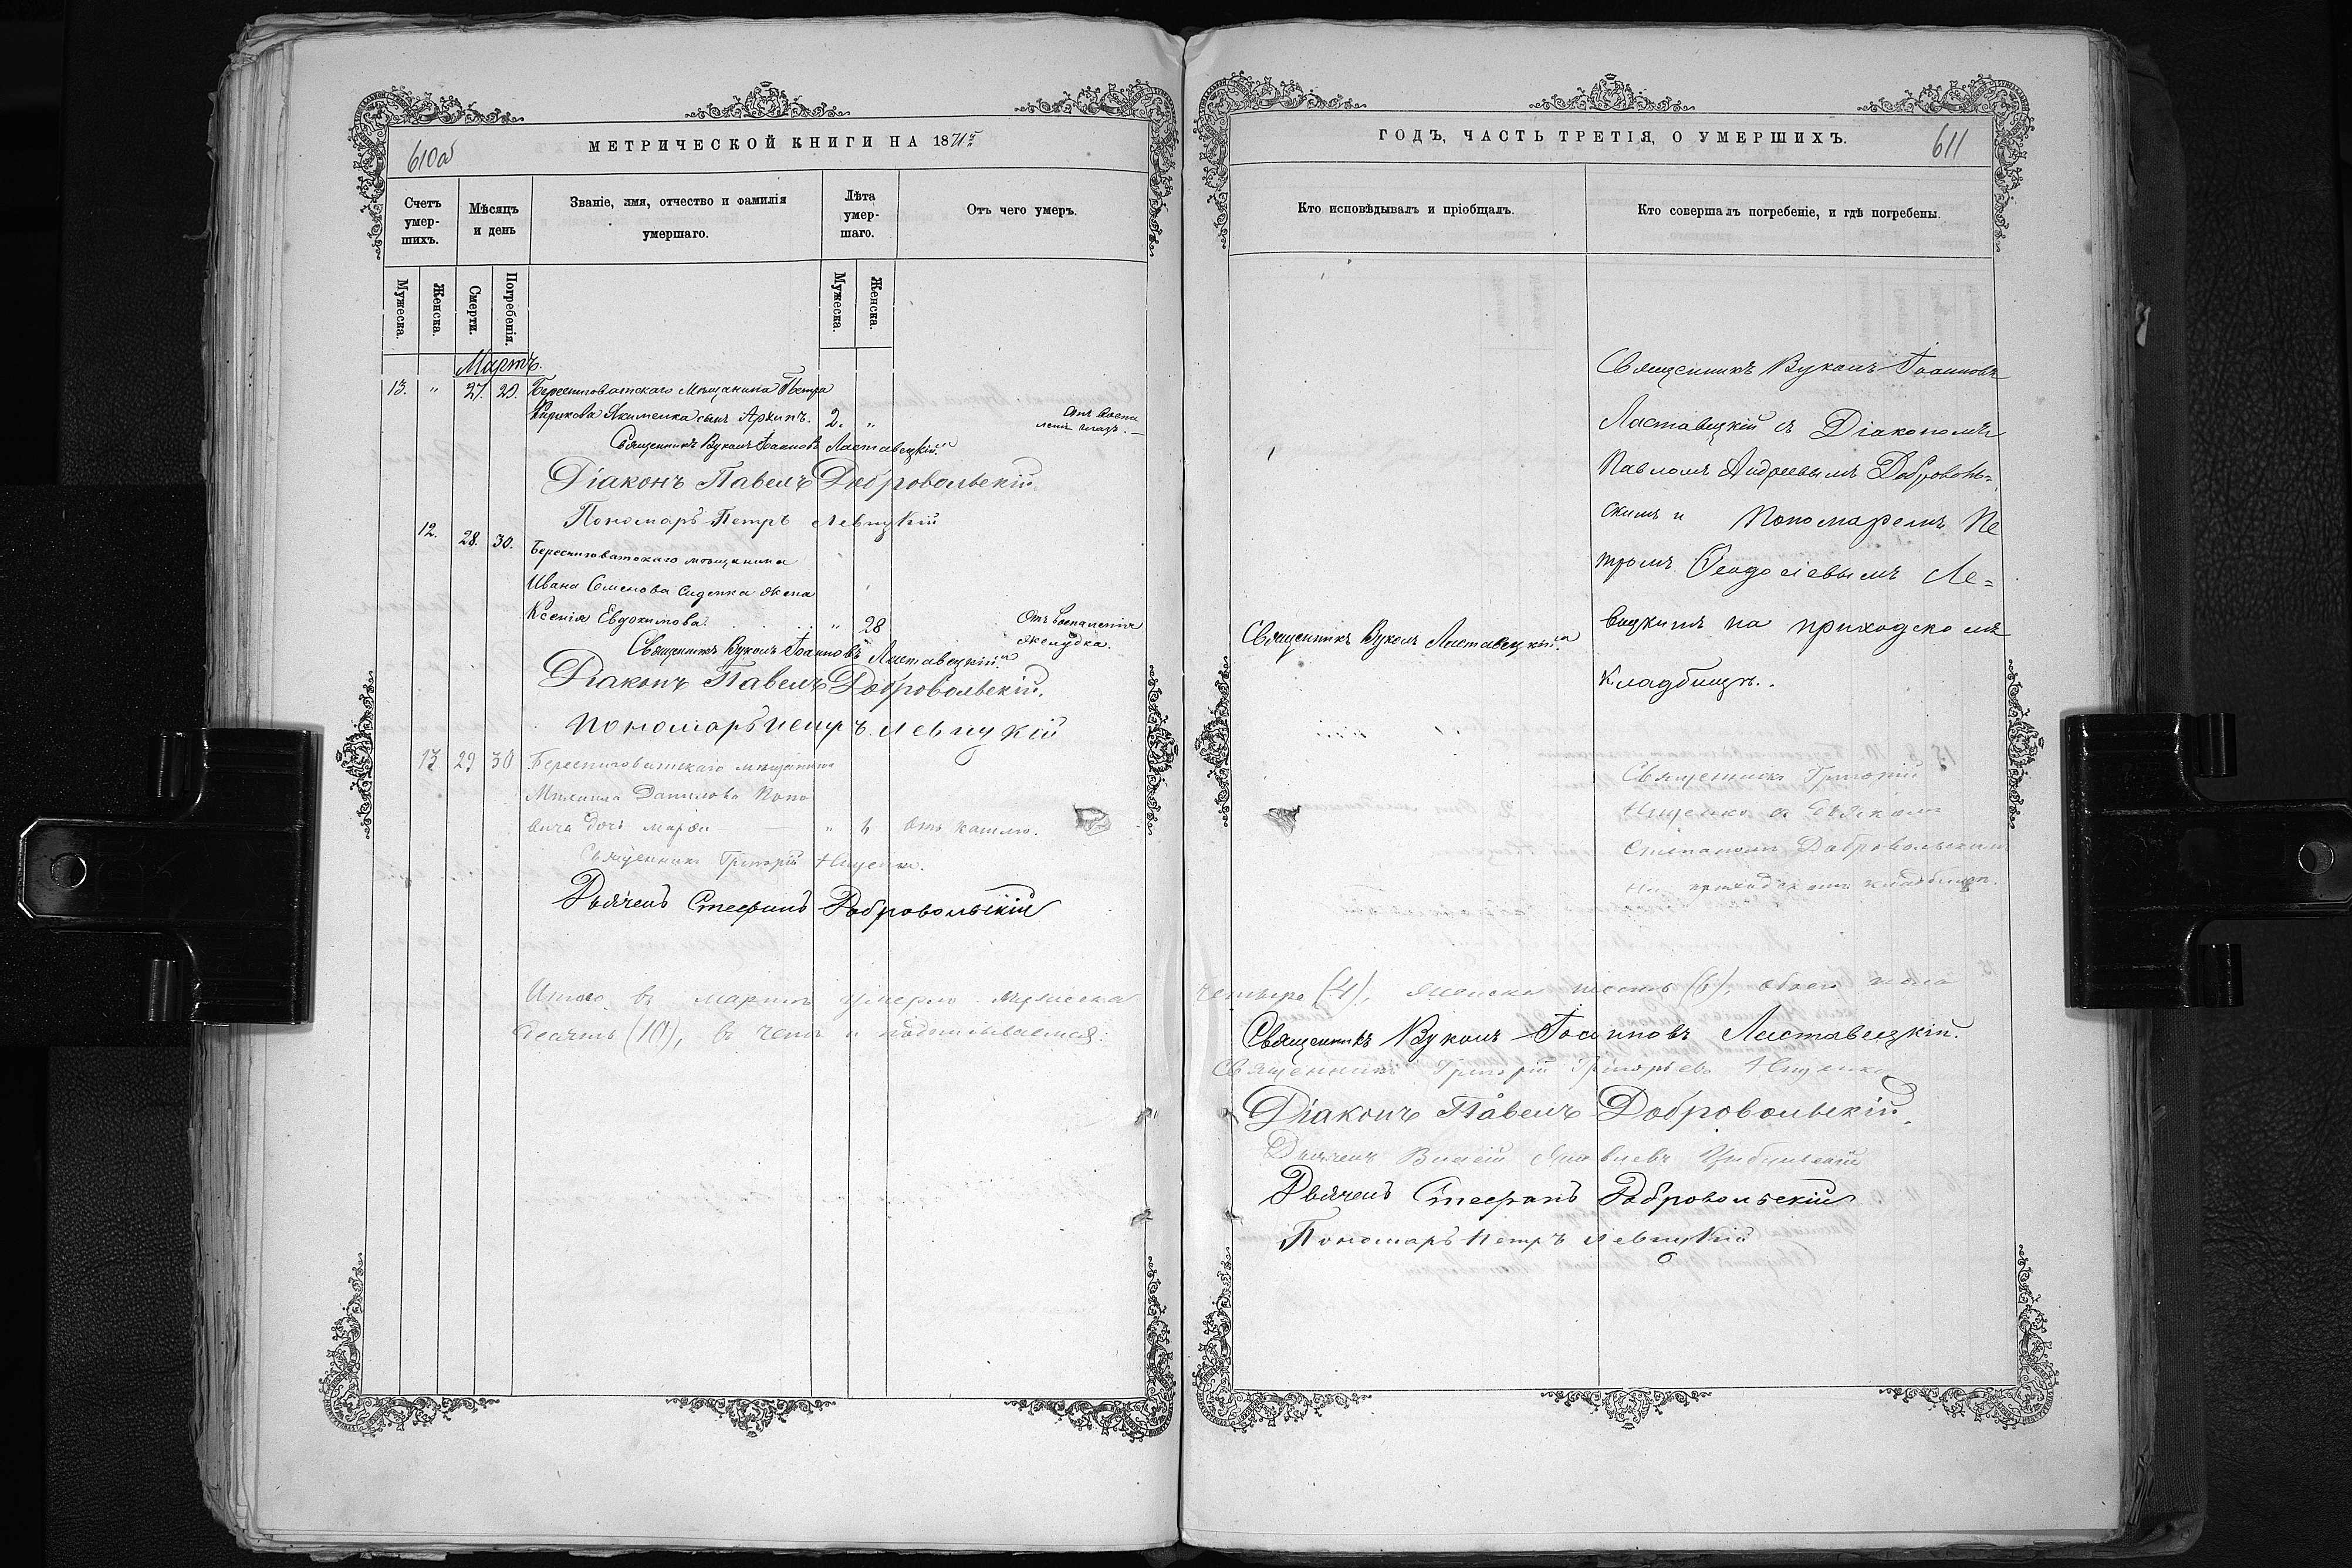 МЕТРИЧЕСКОЙ КНИГИ НА 1871й
610об
Счетъ умер-шихъ.
Мѣсяцъ и день
Званіе, имя, отчество и фамилія умершаго.
Лѣта умер-шаго.
Отъ чего умеръ.
Мужеска.
Женска.
Смерти.
Погребенія.
Мужеска.
Женска.
Мартъ.
13. " 27. 29. Береснеговатскаго Мѣщанина Петра
Якименка сынъ Архипъ. 2. " Отъ воспа
леніе глазъ. —
Священникъ Вуколъ Іоанновъ Листавецкій
Діаконъ Павелъ Добровольскій
Пономарь Петръ Левицкій
12. 28. 30. Береснеговатскаго мѣщанина
Ивана Семенова Сиденка жена
Ксенія Евдокимова. " 28 Отъ воспаленія
желудка.
Священникъ Вуколъ Іоанновъ Листавецкій
Діаконъ Павелъ Добровольскій.
Пономарь Петръ Левицкій
13 29 30 Береснеговатскаго мѣщанина
Михаила Данилова Попо
вича дочь " отъ кашлю.
Священникъ Григорій Нищенко.
Дьячекъ Стефанъ Добровольскій
Итого въ мартѣ умерло мужеска
десять (10), въ чемъ и подписываемся:
ГОДЪ, ЧАСТЬ ТРЕТІЯ, О УМЕРШИХЪ.
611
Кто исповѣдывалъ и пріобщалъ.
Кто совершалъ погребеніе, и гдѣ погребены.
Священникъ Вуколъ Іоанновъ
Листавецкій съ Діакономъ
Павломъ Андреевымъ Доброволь=
скимъ и Пономаремъ Пе
тромъ Ѳеодосіевымъ Ле=
вицкимъ на приходскомъ
кладбищѣ.
Священникъ Вуколъ Листавецкій
Священникъ Григорій
Нищенко съ дьячкомъ
Степаномъ Добровольскимъ
на приходскомъ кладбищѣ.
четыре (4), женска шесть (6), обоего пола
Священникъ Вуколъ Іоанновъ Листавецкій.
Священникъ Григорій Григорьевъ Нищенко
Діаконъ Павелъ Добровольскій.
Дьячекъ
Дьячекъ Стефанъ Добровольскій
Пономарь Петръ Левицкій